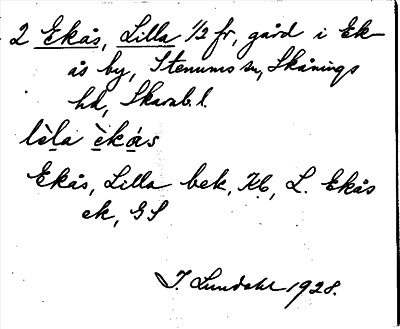 2 Ekås, Lilla 1/2 fr, gård i Ek-
ås by, Stenums sn, Skånings
hd, Skarab. l.
lìla èkás
Ekås, Lilla bek, Kb, L. Ekås
ek, GS
I. Lundahl 1928.